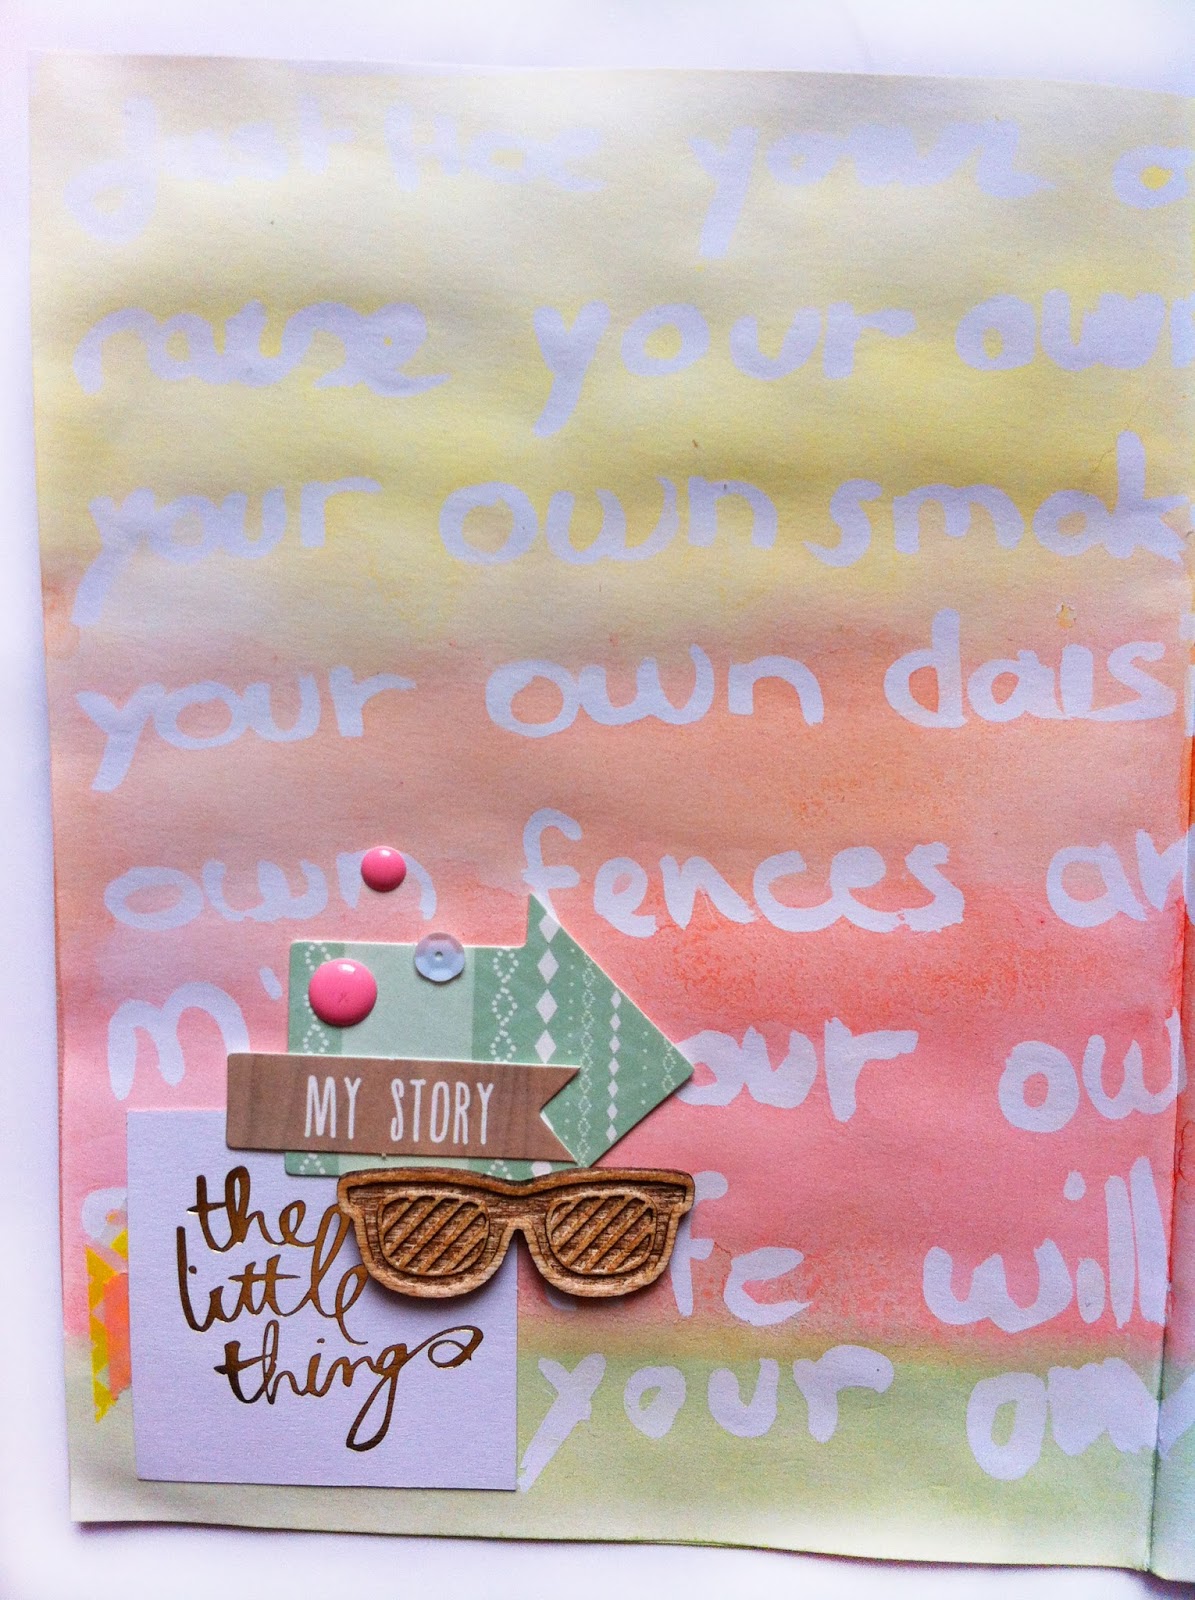 Just Hoe your o
raise your own
your own smok
your own dais
own fences an
our ow
will
your own
MY STORY
the
little
things